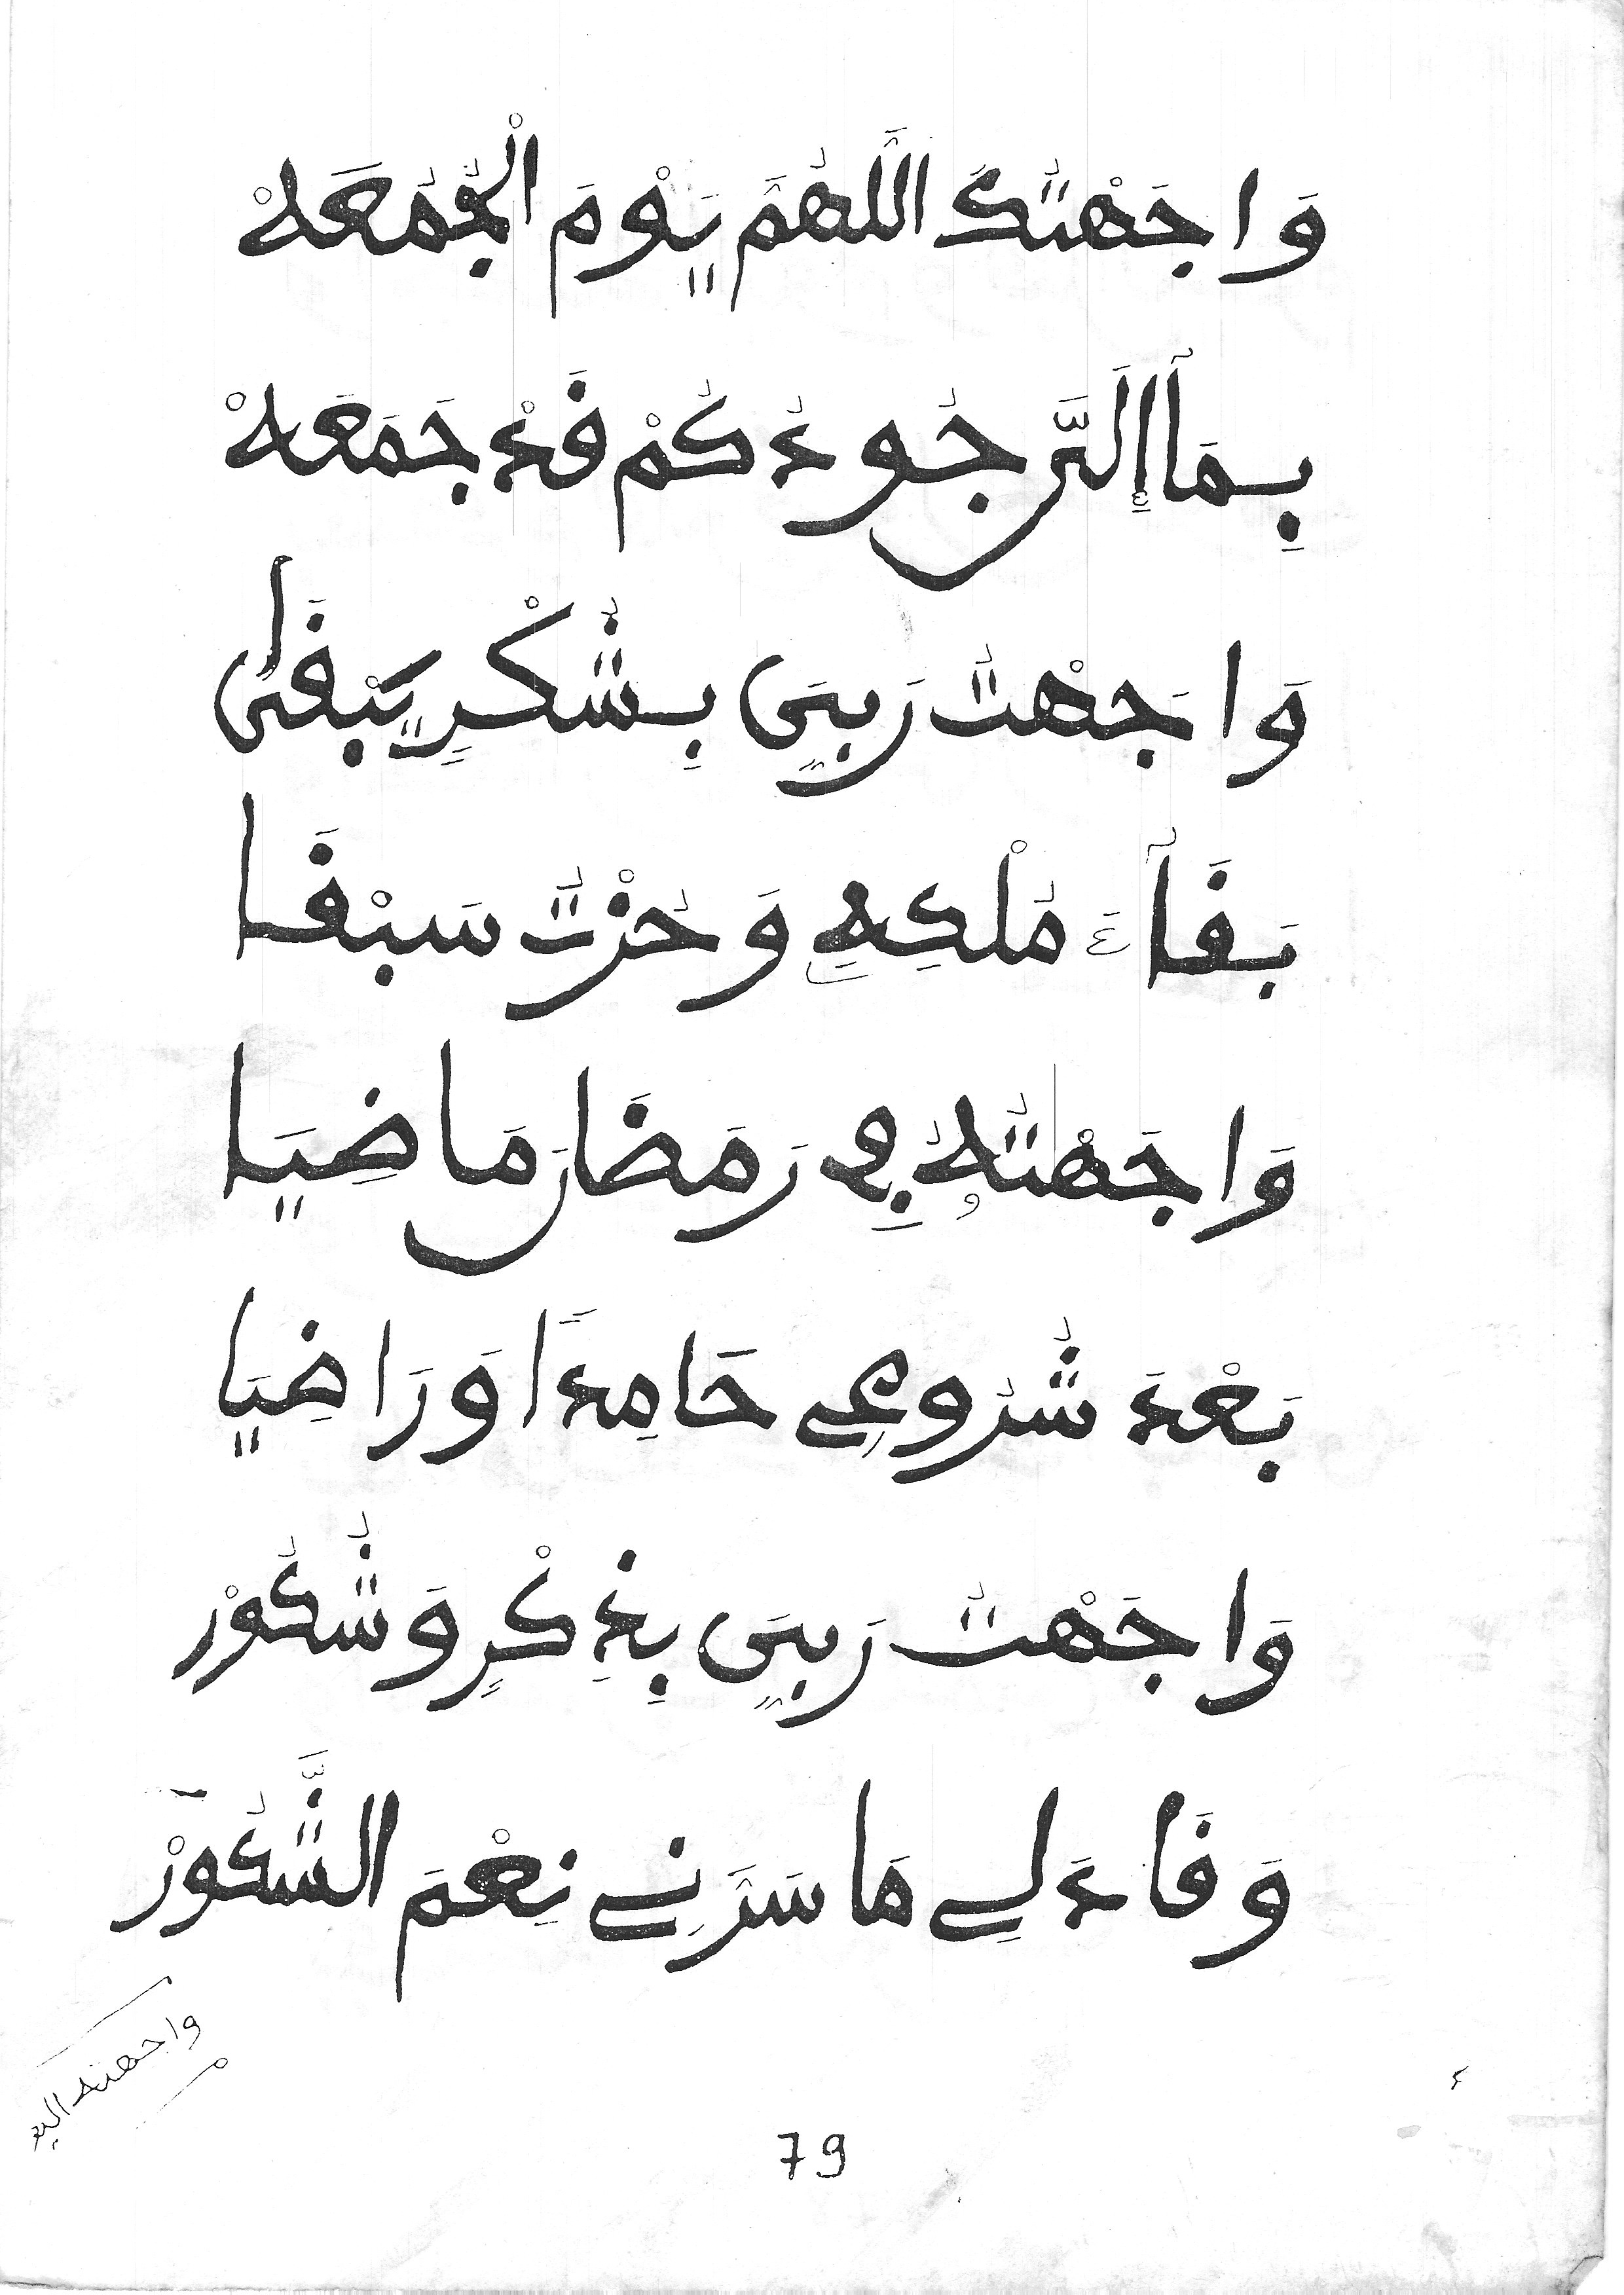 وَاجَهْتُكَ اللَّهُمَّ يَوْمَ الْجُمُعَهْ
بِمَآ إِلَى الرُّجُودُ كُمْ قَدْ جَمَعَهْ
وَاجَهْتُ رَبِّيَ بِشُكْرٍ يَبْقَى
بَقَآءَ مُلْكِهِ وَحُزْتُ سَبْقَا
وَاجَهْتُهُ فِي رَمَضَانَ مَاضِيَا
بَعْدَ شُرُوعِي حَامِدًا وَرَاضِيَا
وَاجَهْتُ رَبِّيَ بِذِكْرٍ وَشُكُورْ
وَقَادَ لِي مَا سَرَّنِي نِعْمَ الشَّكُورْ
واجهته اليـ
79